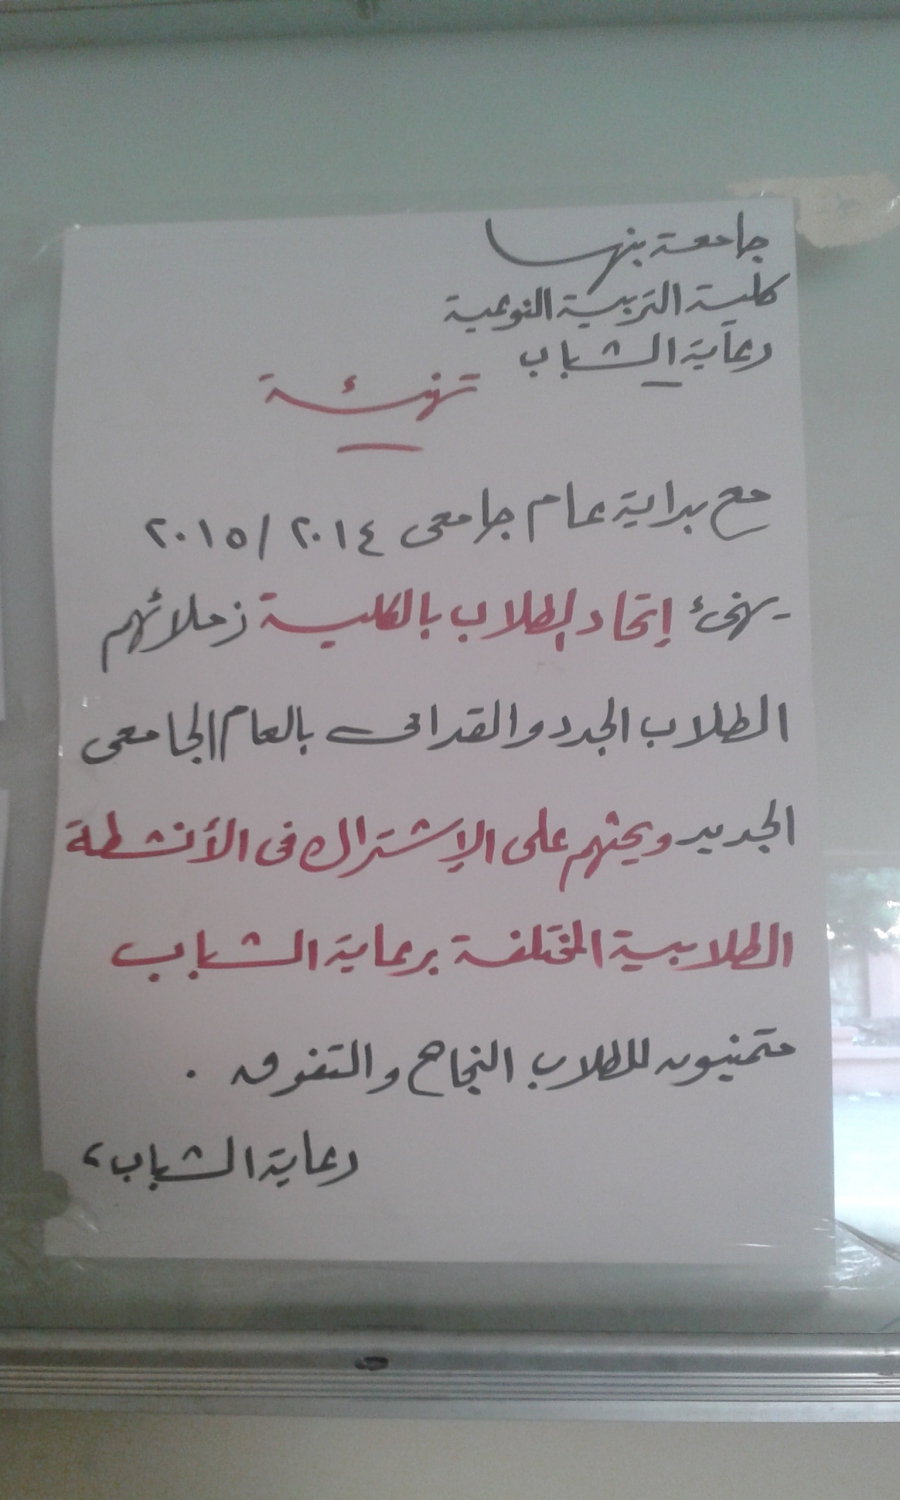 جامعة بنها
كلية التربية النوعية
رعاية الشباب
تهنئة
مع بداية عام جامعى ٢٠١٤ / ٢٠١٥
يهنئ إتحاد الطلاب بالكلية زملائهم
الطلاب الجدد والقدامى بالعام الجامعى
الجديد ويحثهم على الإشتراك فى الأنشطة
الطلابية المختلفة برعاية الشباب
متمنيون للطلاب النجاح والتفوق .
رعاية الشباب،